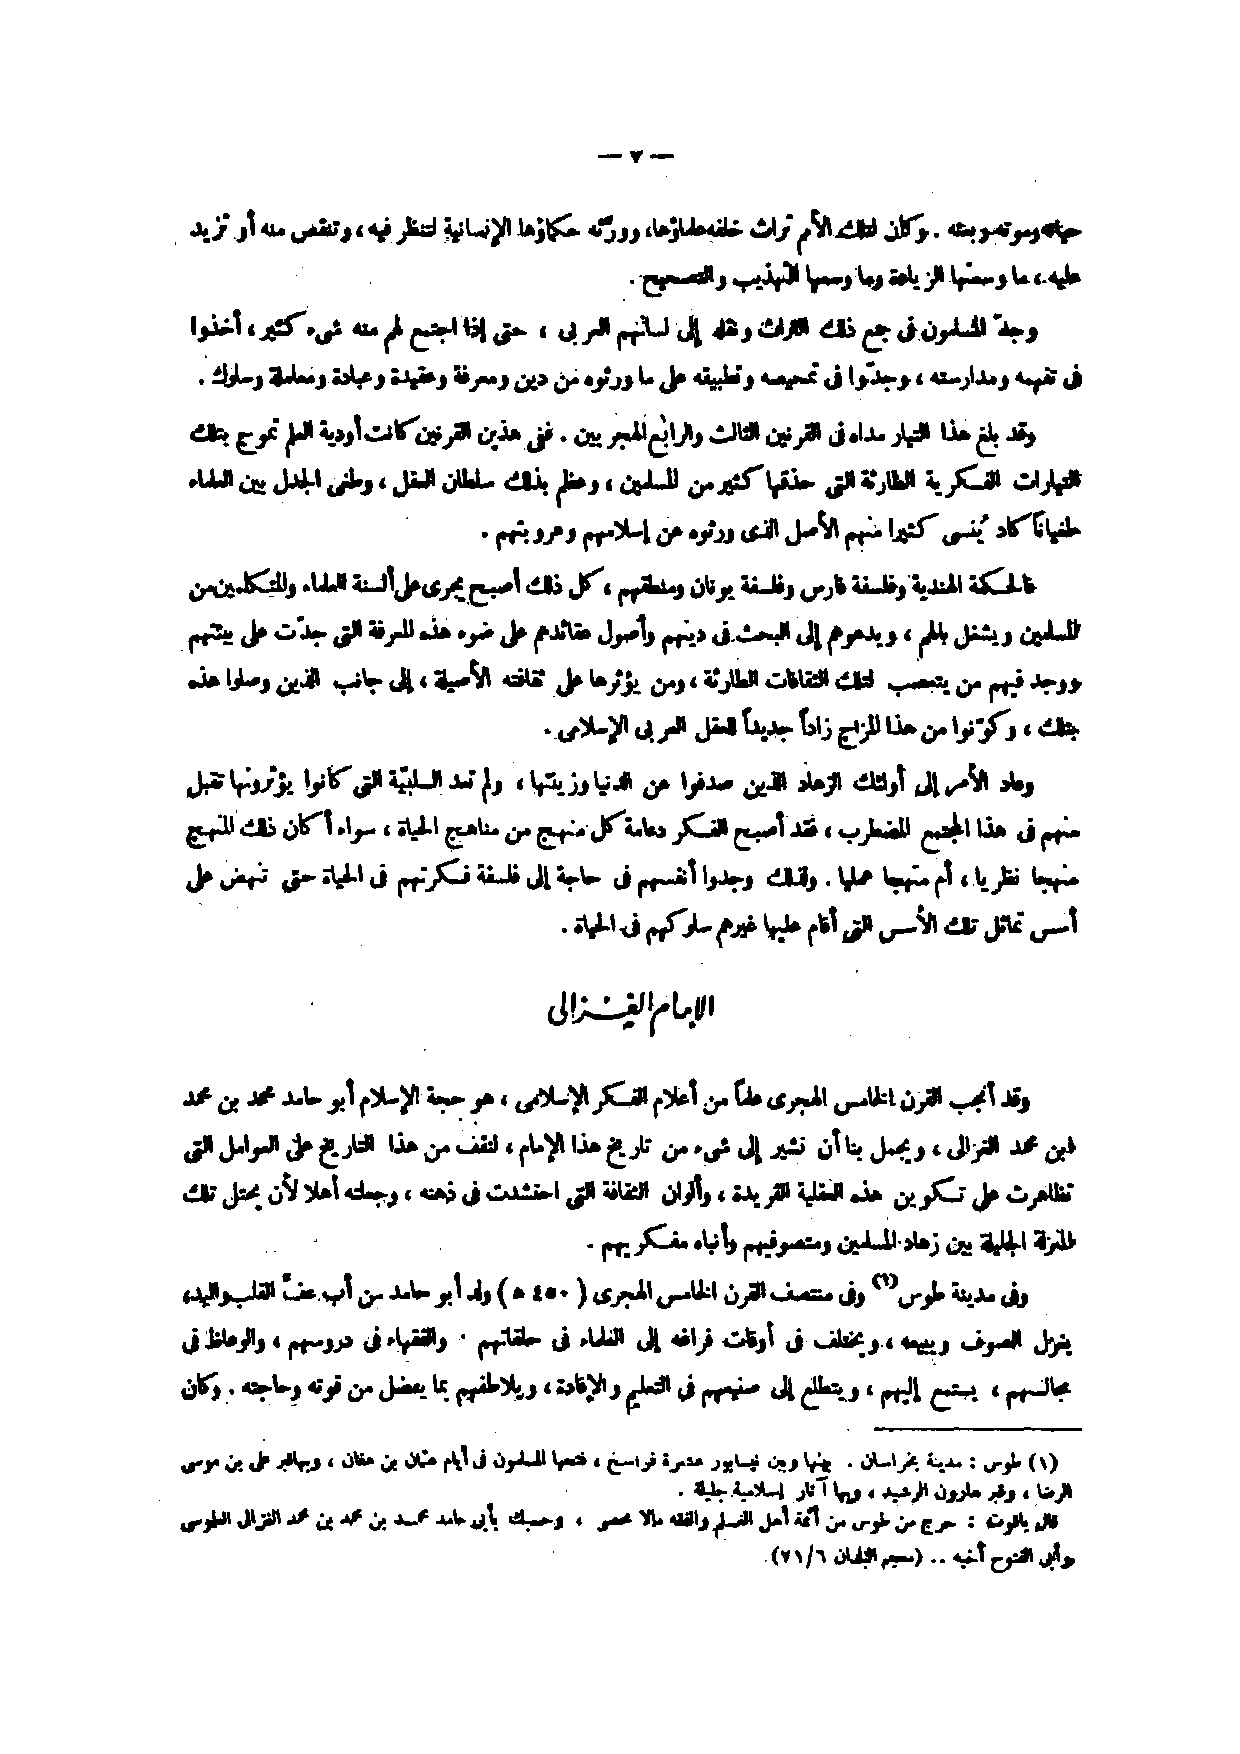 — ٧ —
حياته وموته وبعثه . وكان لتلك الأمم تراث خلفه علماؤها، وورثه حكماؤها الإنسانية لتنظر فيه ، وتنقص منه أو تزيد
عليه ، ما وسعتها الزيادة وما وسعها التهذيب والتصحيح .
وجدّ المسلمون فى جمع ذلك التراث ونقله إلى لسانهم العربى ، حتى إذا اجتمع لهم منه شىء كثير ، أخذوا
فى تفهمه ومدارسته ، وجدّوا فى تمحيصه وتطبيقه على ما ورثوه من دين ومعرفة وعقيدة وعبادة ومعاملة وسلوك .
وقد بلغ هذا التيار مداه فى القرنين الثالث والرابع الهجريين . ففى هذين القرنين كانت أودية العلم تموج بتلك
التيارات الفكرية الطارئة التى حذقها كثير من المسلمين ، وعظم بذلك سلطان العقل ، وطغى الجدل بين العلماء
طغياناً كاد يُنسى كثيرا منهم الأصل الذى ورثوه عن إسلامهم وعروبتهم .
فالحكمة الهندية وفلسفة فارس وفلسفة يونان ومنطقهم ، كل ذلك أصبح يجرى على ألسنة العلماء والمتكلمين من
المسلمين ويشغل بالهم ، ويدعوهم إلى البحث فى دينهم وأصول عقائدهم على ضوء هذه المعرفة التى جدّت على بيئتهم
ووجد فيهم من يتعصب لتلك الثقافات الطارئة ، ومن يؤثرها على ثقافته الأصيلة ، إلى جانب الذين وصلوا هذه
بتلك ، وكوّنوا من هذا المزاج زاداً جديداً للعقل العربى الإسلامى .
وعاد الأمر إلى أولئك الزهاد الذين صدفوا عن الدنيا وزينتها ، ولم تعد السلبيّة التى كانوا يؤثرونها تقبل
منهم فى هذا المجتمع المضطرب ، فقد أصبح الفكر دعامة كل منهج من مناهج الحياة ، سواء أكان ذلك المنهج
منهجا نظريا ، أم منهجا عمليا . ولذلك وجدوا أنفسهم فى حاجة إلى فلسفة فكرتهم فى الحياة حتى تنهض على
أسس تماثل تلك الأسس التى أقام عليها غيرهم سلوكهم فى الحياة .
الإمام الغزالى
وقد أنجب القرن الخامس الهجرى علماً من أعلام الفكر الإسلامى ، هو حجة الإسلام أبو حامد محمد بن محمد
ابن محمد الغزالى ، ويجمل بنا أن نشير إلى شىء من تاريخ هذا الإمام ، لنقف من هذا التاريخ على العوامل التى
تظاهرت على تكوين هذه العقلية الفريدة ، وألوان الثقافة التى احتشدت فى ذهنه ، وجعلته أهلا لأن يحتل تلك
المنزلة الجليلة بين زهاد المسلمين ومتصوفيهم وأنباه مفكريهم .
وفى مدينة طوس (١) وفى منتصف القرن الخامس الهجرى ( ٤٥٠ ھ ) ولد أبو حامد من أب عفّ القلب واليد،
يغزل الصوف ويبيعه ، ويختلف فى أوقات فراغه إلى العلماء فى حلقاتهم ، والفقهاء فى دروسهم ، والوعاظ فى
مجالسهم ، يستمع إليهم ، ويتطلع إلى صنيعهم فى التعليم والإفادة ، ويلاطفهم بما يفضل من قوته وحاجته . وكان
(١) طوس : مدينة بخراسان . بينها وبين نيسابور عشرة فراسخ ، فتحها المسلمون فى أيام عثمان بن عفان ، وبها قبر على بن موسى
الرضا ، وقبر هارون الرشيد ، وبها آثار إسلامية جليلة .
قال ياقوت : خرج من طوس من أئمة أهل العلم والفقه مالا يحصى ، وحسبك بأبى حامد محمد بن محمد بن محمد الغزالى الطوسى
وأبى الفتوح أخيه .. (معجم البلدان ٦/٧١)